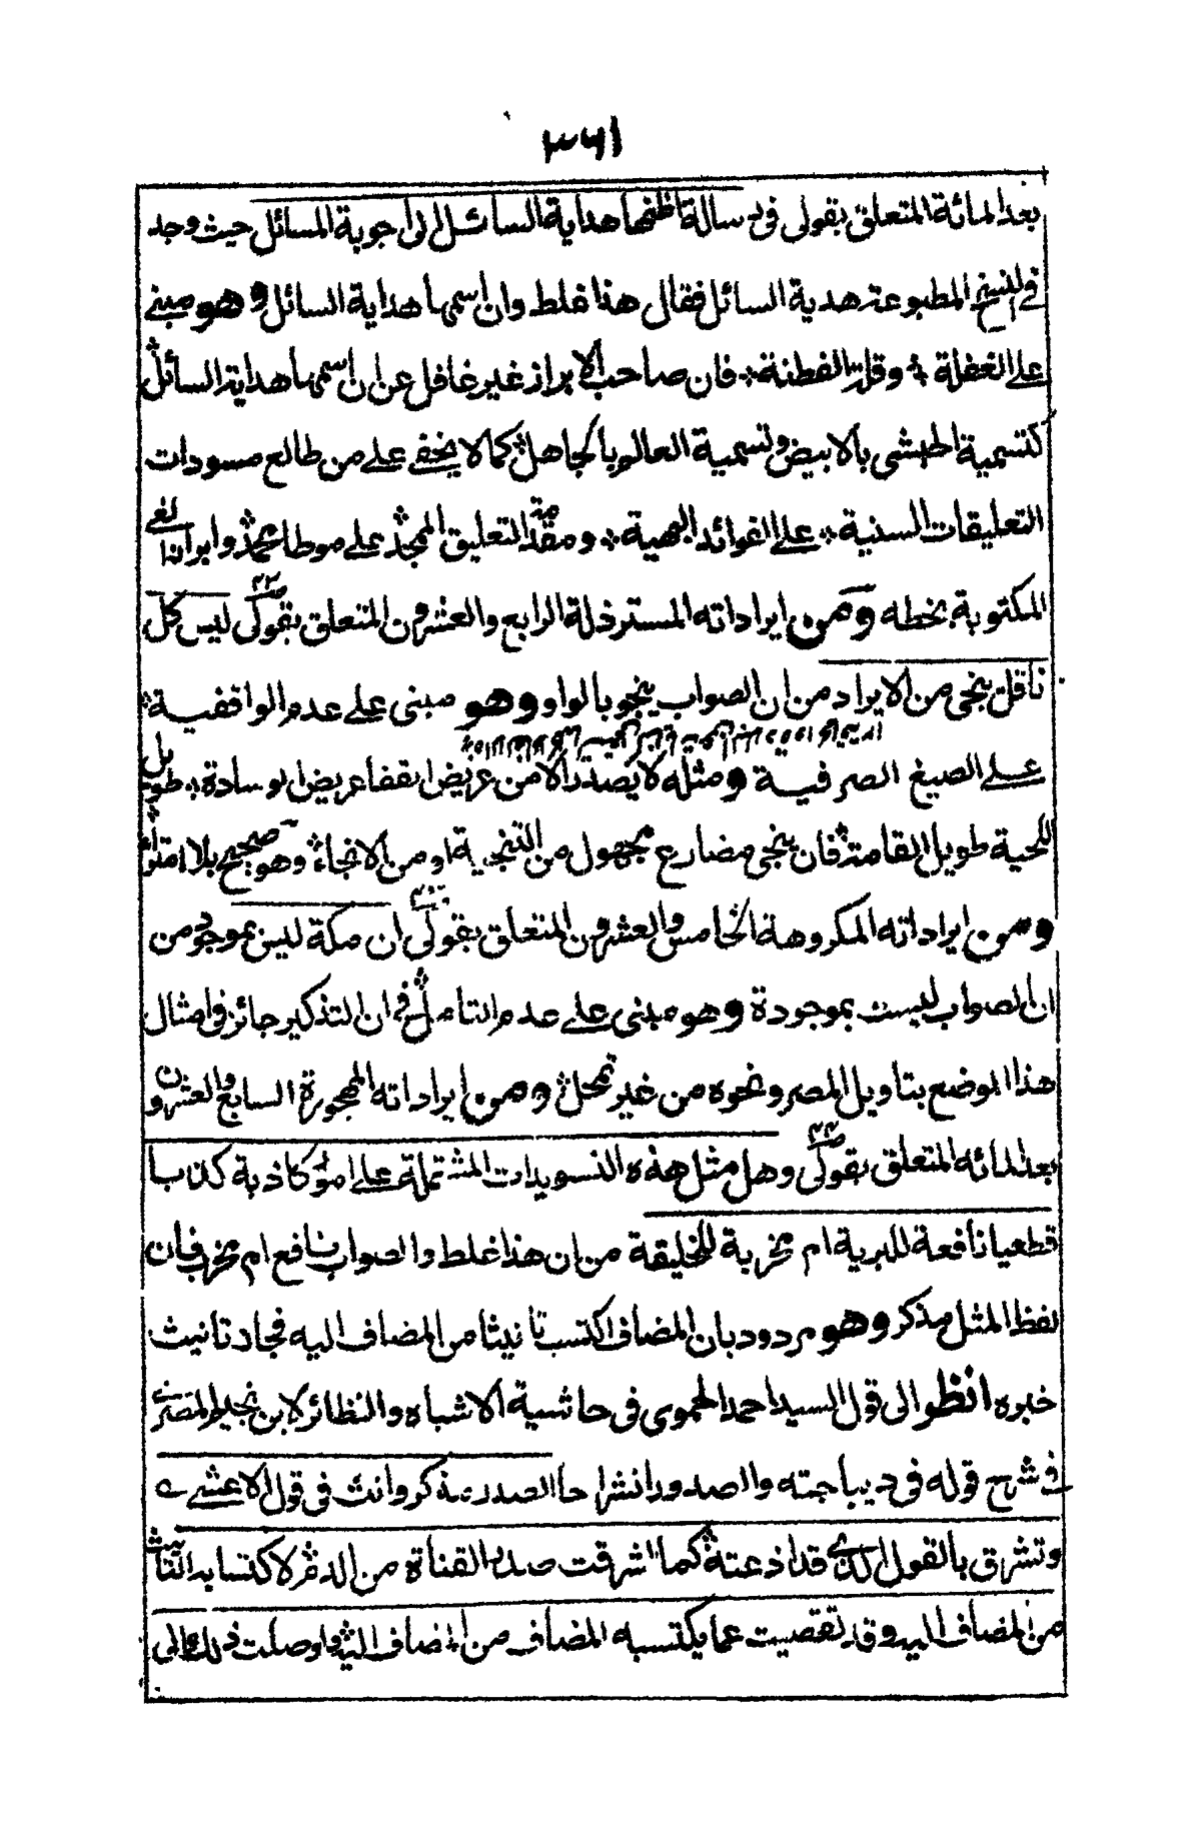 ٣٦١
بعد المائة المتعلق بقولى فى رسالة اظنها هداية السائل الى اجوبة المسائل حيث وجد
فى النسخ المطبوعة هدية السائل فقال هذا غلط وان اسمها هداية السائل وهو مبنى
على الغفلة * وقلة الفطنة * فان صاحب الابراز غير غافل عن ان اسمها هداية السائل
كتسمية الحبشى بالابيض وتسمية العالم بالجاهل كما لا يخفى على من طالع مسودات
التعليقات السنية * على الفوائد البهية * ومقدمة التعليق الممجد على موطا محمد وابراز الغى
المكتوبة بخطه ومن ايراداته المسترذلة الرابع والعشرون المتعلق بقولى ص٢٢ ليس كل
ناقل ينجى من الايراد من ان الصواب ينجو بالواو وهو مبنى على عدم الواقفية *
على الصيغ الصرفية ومثله لا يصدر الا من عريض القفا عريض الوسادة * طويل
اللحية طويل القامة فان ينجى مضارع مجهول من التنجية او من الانجاء وهو صحيح بلا امتراء
ومن ايراداته المكروهة الخامس والعشرون المتعلق بقولى ان مكة ليس بموجود من
ان الصواب ليست بموجودة وهو مبنى على عدم التامل فى ان التذكير جائز فى امثال
هذا الموضع بتاويل المصر ونحوه من غير تمحل ومن ايراداته المهجورة السابع والعشرون
بعد المائه المتعلق بقولى ص٢٢ وهل مثل هذه التسويدات المشتملة على امور كاذبة كذبا
قطعيا نافعة للبرية ام مخربة للخليقة من ان هذا غلط والصواب نافع ام مخرب فان
لفظ المثل مذكر وهو مردود بان المضاف اكتسب تانيثا من المضاف اليه فجاد تانيث
خبره انظر الى قول السيد احمد الحموى فى حاشية الاشباه والنظائر لابن نجيم المصرى
فى شرح قوله فى ديباجته والصدور انشراحا الصدر مذكر وانث فى قول الاعشى ے
وتشرق بالقول الذى قد اذعته كما اشرقت صدر القناة من الدم لاكتسابه التانيث
من المضاف اليه وقد تقصيت عما يكتسبه المضاف من المضاف اليه واوصلت ذلك الى